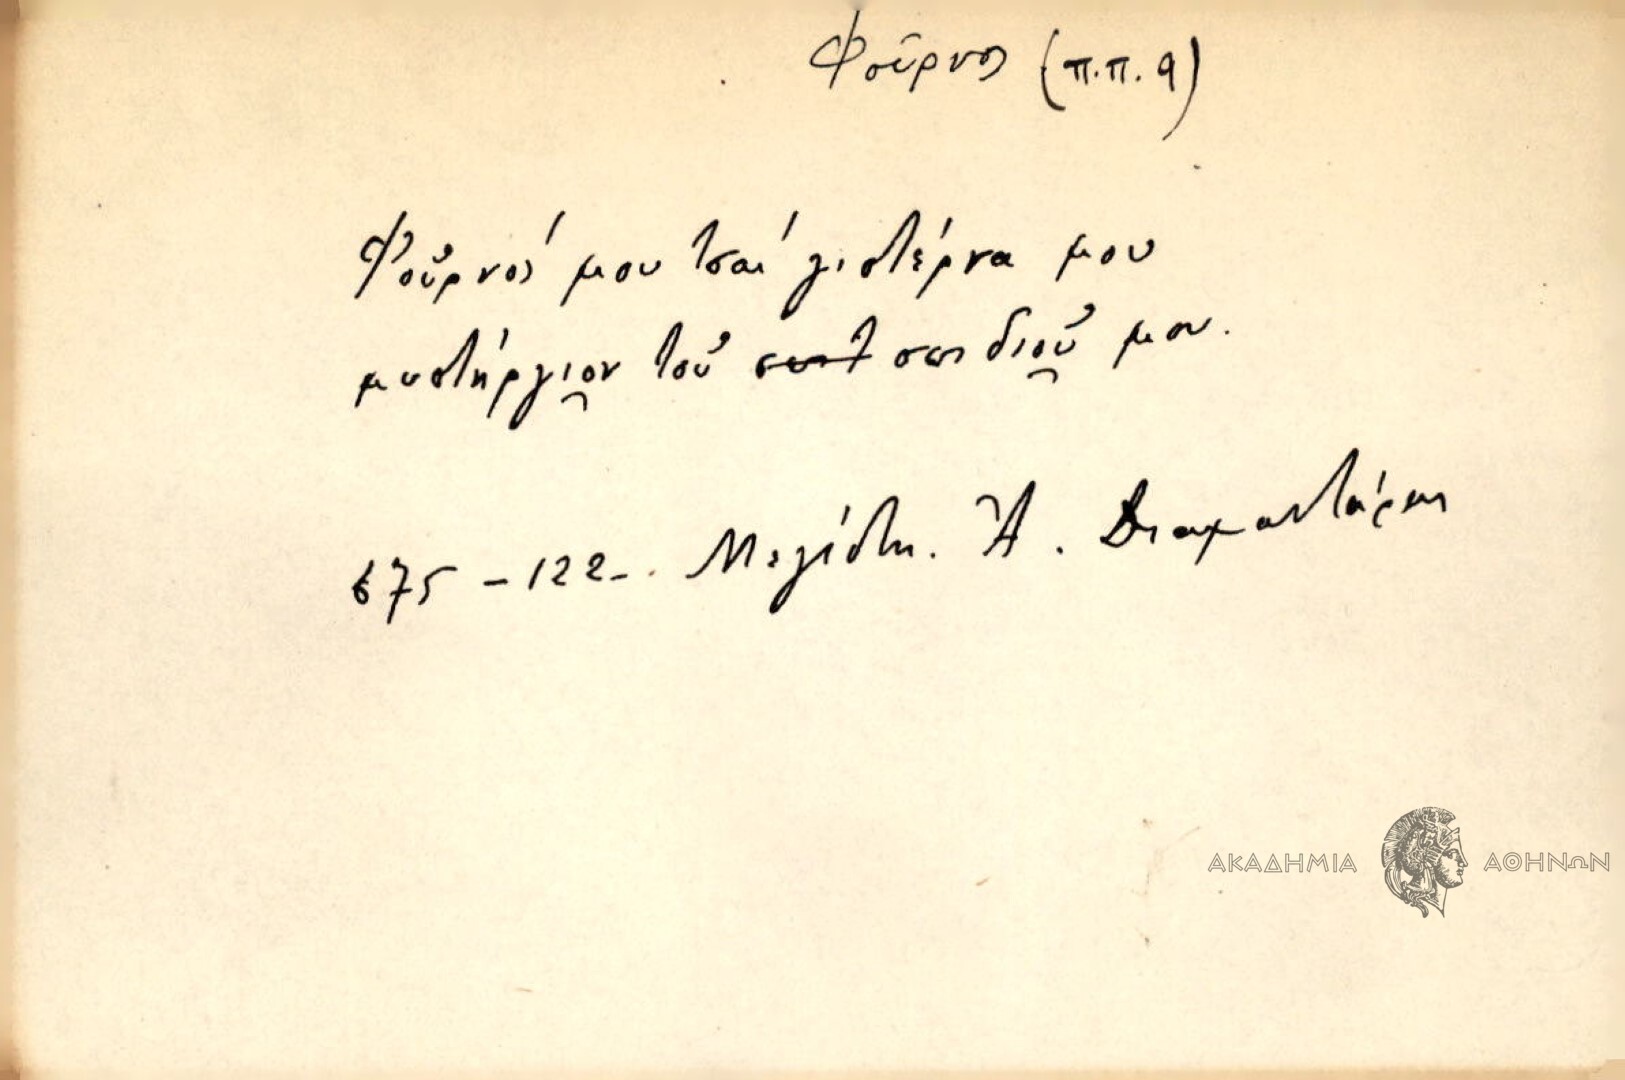 Φοῦρνος (π.π. 9)
Φοῦρνός μου τσαί γιστέρνα μου
μυστήργιον τοῦ σπιδιοῦ μου.
675 - 122 - Μεγίστη. Ἀ. Διαμαντάρας
ΑΚΑΔΗΜΙΑ ΑΘΗΝΩΝ